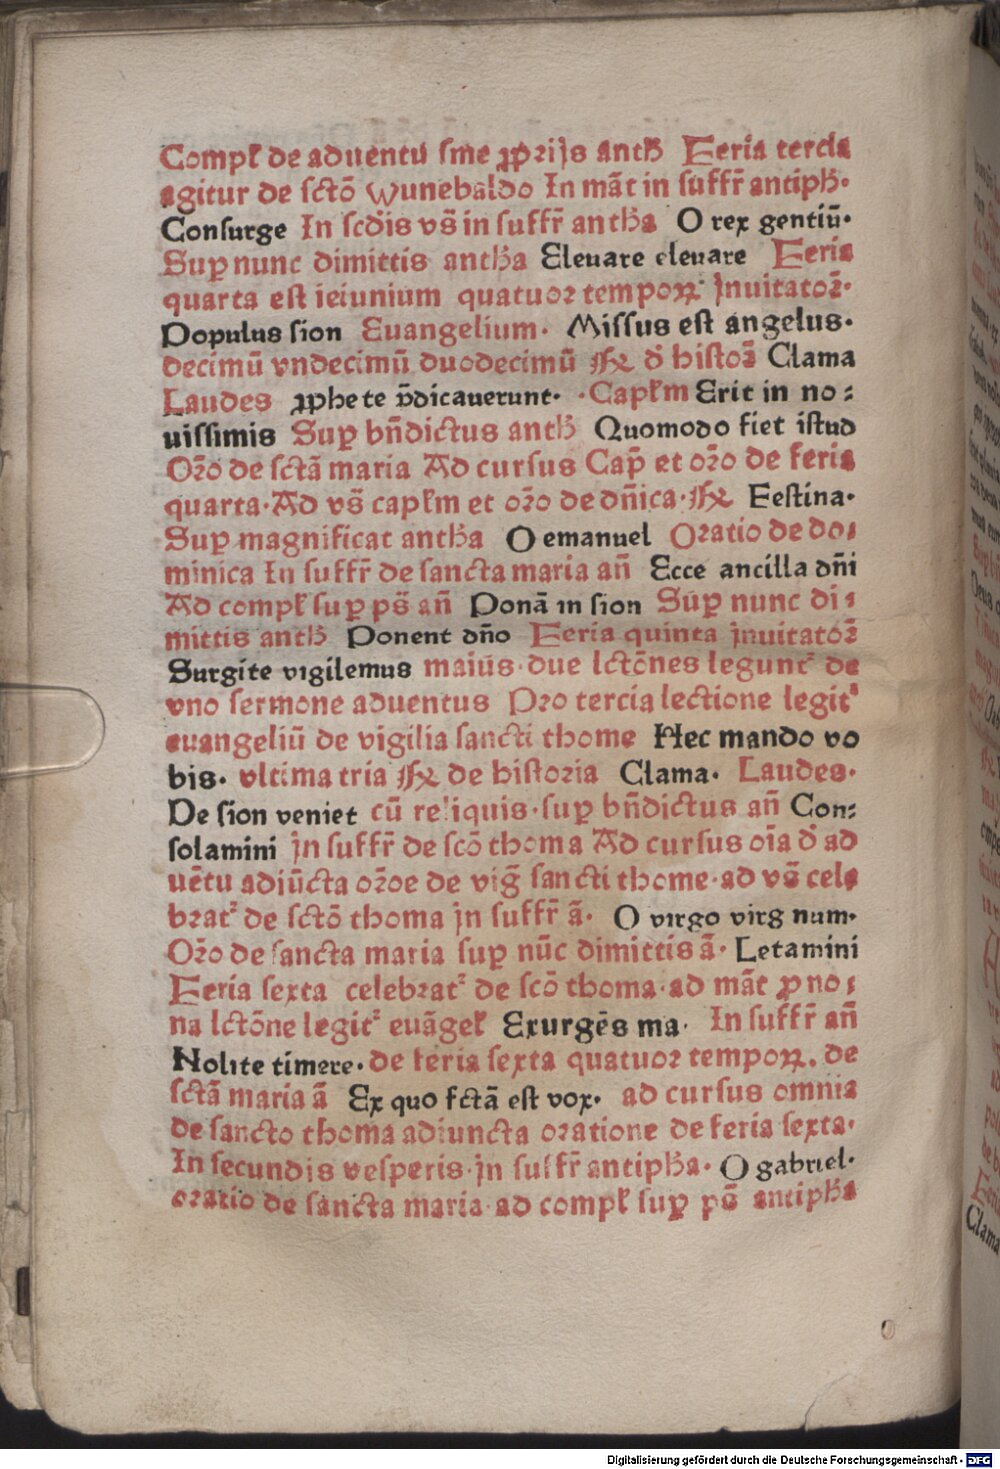 Compł de aduentu sıne ꝓprijs anth̄ Feria tercia
agitur de sctō wunebaldo In māt in suffr̄ antiph̄·
Consurge In scdis vs̄ in suffr̄ anth̄a O rex gentiū·
Sup nunc dimittis anth̄a Eleuare eleuare Feria
quarta est ieiunium quatuor tempoꝝ Inuitatoꝛ̄·
Populus sion Euangelium· Missus est angelus·
decimū vndecimū duodecimū ꝶ d̄ histoꝛ̄ Clama
Laudes ꝓphete p̄dicauerunt· ·Capłm Erit in no⸗
uissimis Sup bn̄dictus anth̄ Quomodo fiet istud
Oꝛ̄o de sctā maria Ad cursus Cap̄ et oꝛ̄o de feria
quarta·Ad vs̄ capłm et oꝛ̄o de dn̄ica·ꝶ Festina·
Sup magnificat anth̄a O emanuel Oratio de do⸗
minica In suffr̄ de sancta maria an̄ Ecce ancilla dn̄i
Ad compł sup ps̄ an̄ Ponā in sion Sup nunc di⸗
mittis anth̄ Ponent dn̄o Feria quinta Inuitatoꝛ̄
Surgite vigilemus maius·due lctōnes legunt᷑ de
vno sermone aduentus Pro tercia lectione legit᷑
euangeliū de vigilia sancti thome Hec mando vo
bis· vltima tria ꝶ de historia Clama· Laudes·
De sion veniet cū reliquis·sup bn̄dictus an̄ Con⸗
solamini In suffr̄ de scō thoma Ad cursus oīa d̄ ad
uētu adiūcta oꝛ̄oe de viḡ sancti thome·ad vs̄ cele
brat᷑ de sctō thoma In suffr̄ ā· O virgo virg num·
Oꝛ̄o de sancta maria sup nūc dimittis ā· Letamini
Feria sexta celebrat᷑ de scō thoma·ad māt ꝓ no⸗
na lctōne legit᷑ euāgeł Exurgēs ma· In suffr̄ an̄
Nolite timere·de feria sexta quatuor tempoꝝ. de
sctā maria ā Ex quo fctā est vox· ad cursus omnia
de sancto thoma adiuncta oratione de feria sexta·
In secundis vesperis·In suffr̄ antiph̄a· O gabriel·
oratio de sancta maria·ad compł sup ps̄ antiph̄a
Digitalisierung gefördert durch die Deutsche Forschungsgemeinschaft - DFG